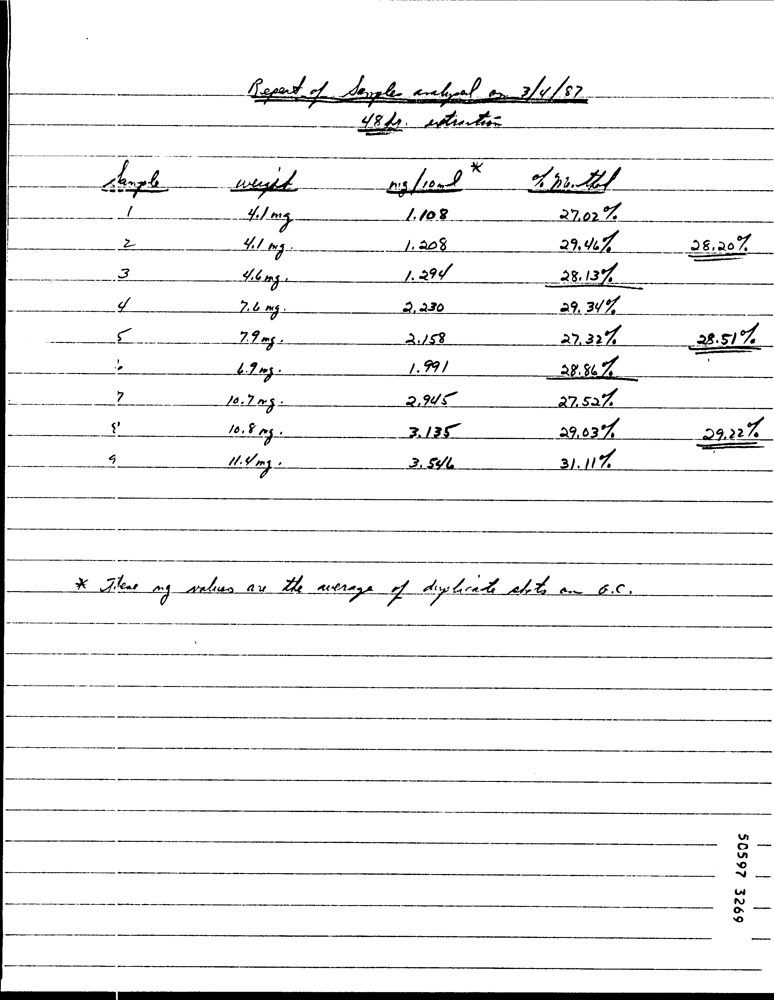 Report of Samples analysed on 3/4/87
48 hr. extraction
Sample weight mg/10ml * % Menthol
1 4.1 mg 1.108 27.02%
2 4.1 mg. 1.208 29.46% 28.20%
3 4.6 mg. 1.294 28.13%
4 7.6 mg. 2.230 29.34%
5 7.9 mg. 2.158 27.32% 28.51%
6 6.9 mg. 1.991 28.86%
7 10.7 mg. 2.945 27.52%
8 10.8 mg. 3.135 29.03% 29.22%
9 11.4 mg. 3.546 31.11%
* These mg values are the average of duplicate shots on G.C.
50597 3269